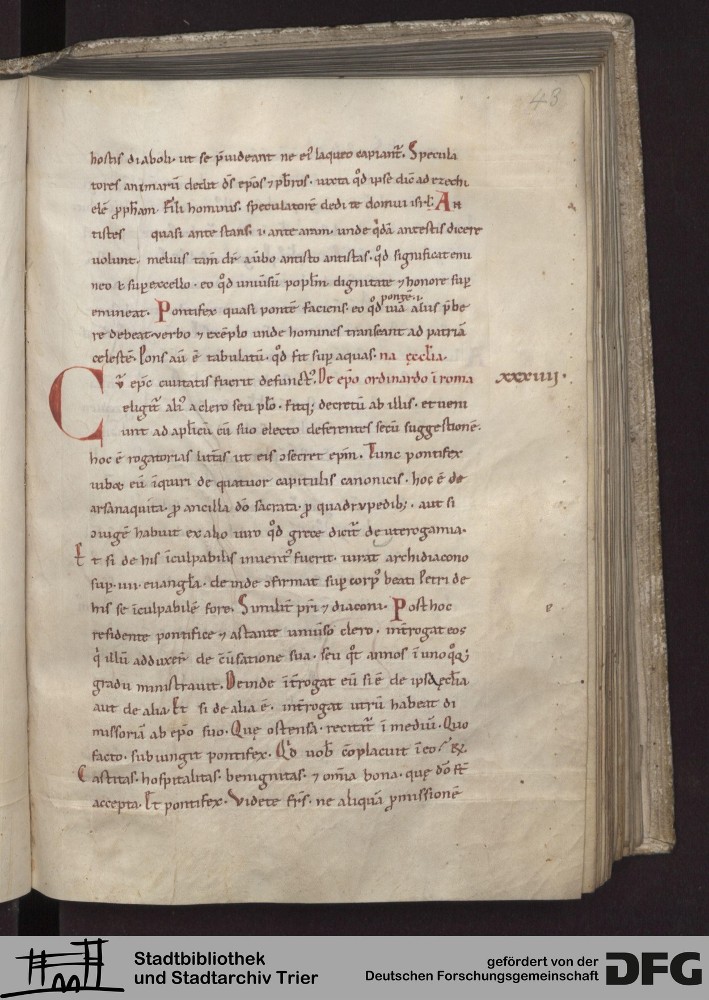 43
hostis diaboli. ut se p̄uideant ne ei' laqueo capiant̄. Specula
tores animarū dedit ds̄ ep̄os ⁊ p̄b̄ros. iuxta qd̄ ipse dic̄ ad ezechi
elē ꝓpħam. Fili hominis. speculatorē dedi te domui isrl̄. An
tistes quasi ante stans. i. ante amn̄. unde qⁱdā antestis dicere
uolunt. melius tam̄ dr̄ a ūbo antisto antistas. qd̄ significat emi
neo ł sup̲excello. eo qd̄ uniūsū popl̄m dignitate ⁊ honore sup̲
emineat. Pontifex quasi pontē faciens. eo qd̄ uiā aliis p̄be
re debeat. uerbo ⁊ exēplo unde homines transeant ad patriā
celestē. Pons aū ē tabulatū. qd̄ fit sup̲ aquas. na ęcclia.
Cū ep̄c ciuitatis fuerit defunct'. De ep̄o ordinando ī roma xxxiiii.
eligit̄ ali' a clero seu plō. fitq; decretū ab illis. et ueni
unt ad ap̄licū cū suo electo deferentes secū suggestionē.
hoc ē rogatorias litt̄as ut eis ↄsecret ep̄m. Tunc pontifex
iubet eū īquiri de quatuor capitulis canonicis. hoc ē de
arsanaquita. ꝓ ancilla dō sacrata. ꝓ quadrupedib;. aut si
ↄiugē habuit ex alio uiro qd̄ grece dicit̄ deuterogamia.
Et si de his īculpabilis inuent' fuerit. iurat archidiacono
sup̲ .iiii. euangl̄a. deinde ↄfirmat sup̲ corp' beati Petri de
his se īculpabilē fore. Similit̄ pr̄i ⁊ diaconi. Post hoc
residente pontifice ⁊ astante uniūso clero. int̄rogat eos
qⁱ illū adduxer̄ de cūsatione sua. seu qt̄ annos ī unoqq;
gradu ministrauit. Deinde īt̄rogat eū si ē de ipsa ęcclia
aut de alia. Et si de alia ē. int̄rogat utrū habeat di
missoriā ab ep̄o suo. Quę ostensa. recitat̄ ī mediū. Quo
facto. subiungit pontifex. Qd̄ uob̄ cōplacuit ī eo. R̄.
Castitas. hospitalitas. benignitas. ⁊ om̄ia bona. quę dō st̄
accepta. Et pontifex. Videte frs̄. ne aliquā ꝓmissionē
Stadtbibliothek
und Stadtarchiv Trier
gefördert von der
Deutschen Forschungsgemeinschaft
DFG